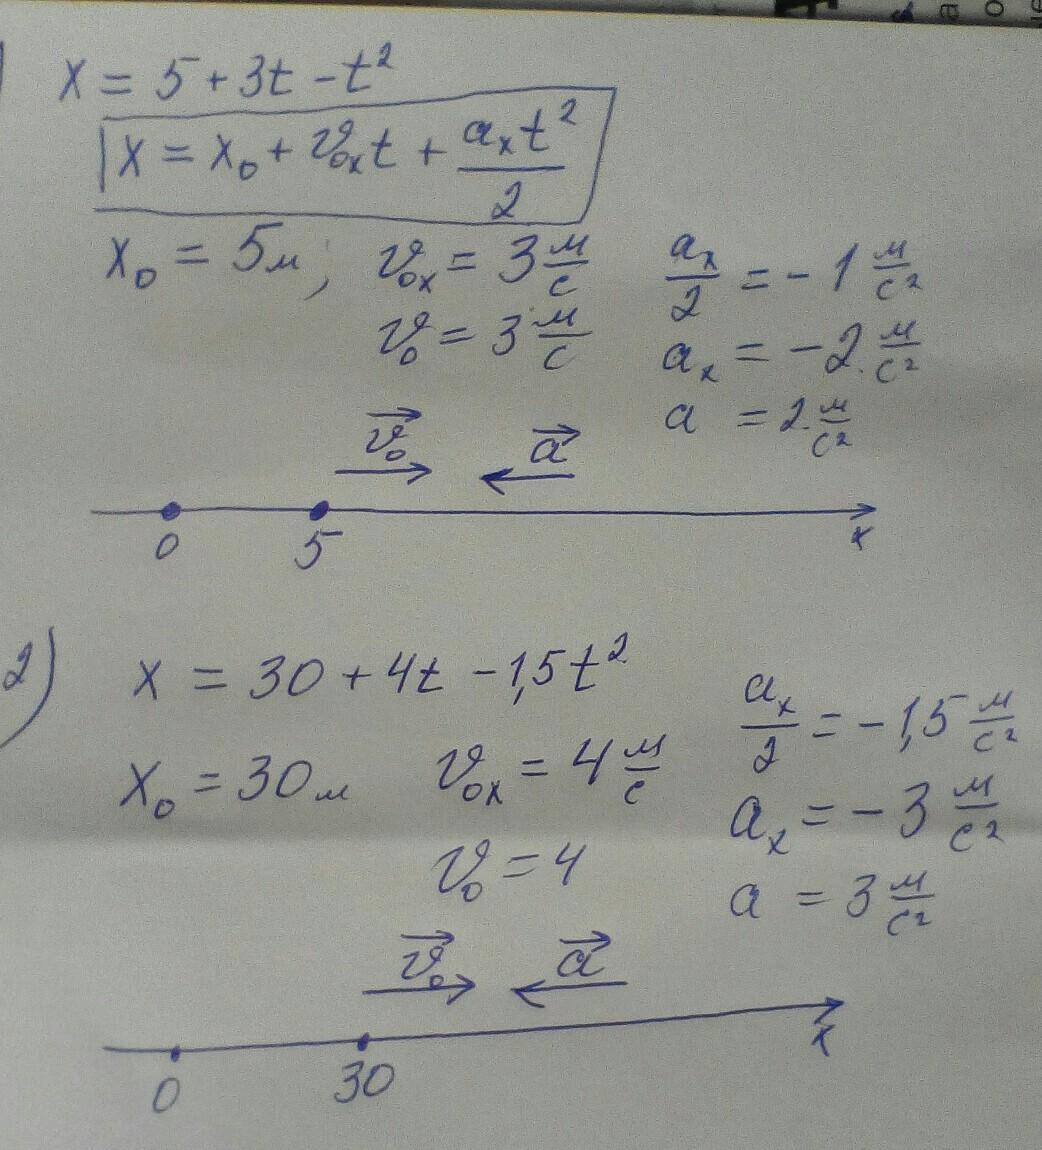 x = 5 + 3t - t²
x = x₀ + v₀ₓt + aₓt²/2
x₀ = 5м; v₀ₓ = 3 м/с aₓ/2 = -1 м/с²
v₀ = 3 м/с aₓ = -2 м/с²
a = 2 м/с²
v₀ a
0 5 x
2) x = 30 + 4t - 1,5t²
aₓ/2 = -1,5 м/с²
x₀ = 30м v₀ₓ = 4 м/с aₓ = -3 м/с²
v₀ = 4 a = 3 м/с²
v₀ a
0 30 x